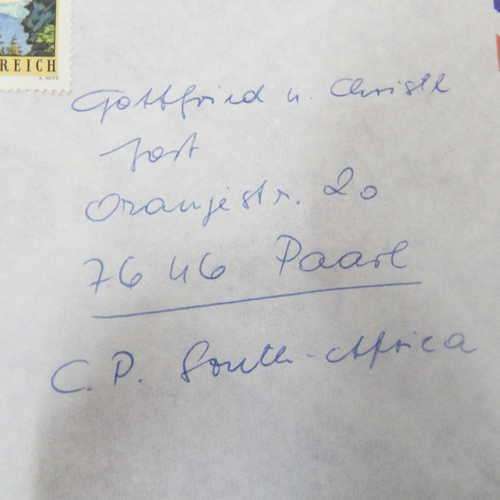 REICH
Gottfried u. Christl
Jost
Oranjestr. 20
7646 Paarl
C.P. South-Africa